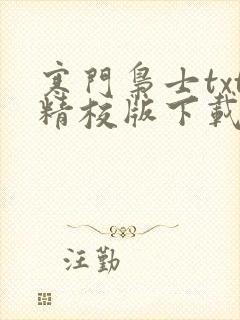 寒門梟士txt
精校版下載
汪勤